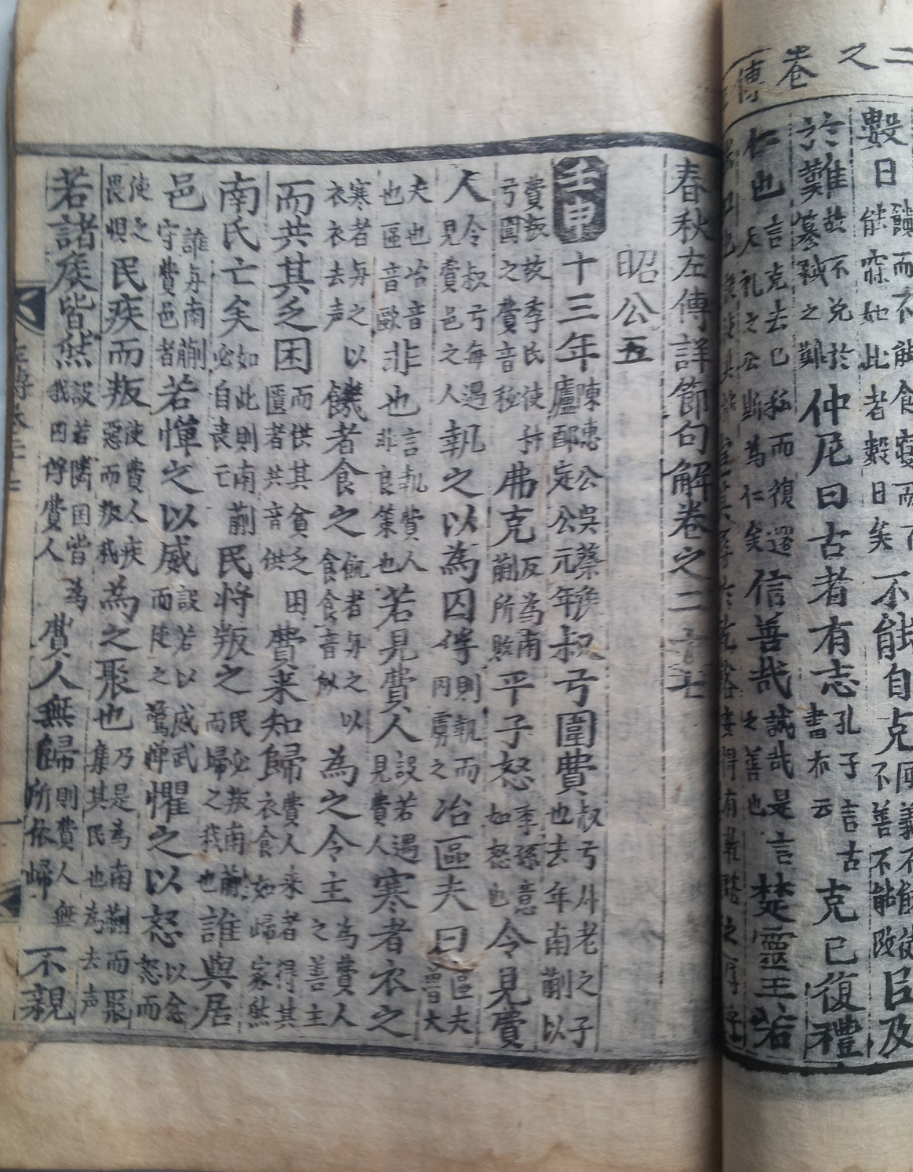 二之卷
傳
數日饋而不能食寢而不能寐如此者數日矣不能自克不善不能改臣及
於難故不免於之難仲尼曰古者有志孔子言古書亦云克己復禮
仁也言克去己私而復還天礼之公斯為仁矣信善哉誠哉是言之善也楚靈王若
春秋左傳詳節句解卷之二十七
昭公五
壬申十三年陳惠公吳蔡侯廬鄭定公元年叔弓圍費叔弓叔老之子也去年南蒯以
費叛故季氏使叔弓圍之費音秘弗克反為南蒯所敗平子怒季孫意如怒也令見費
人令叔弓每遇見費邑之人執之以為囚俘則執而囚虜之冶區夫曰區夫魯大
夫也冶音也區音歐非也言執費人非良策也若見費人設若遇見費人寒者衣之
寒者与之以衣衣去声饑者食之飢者与之以食食音似為之令主為費人之善主
而共其乏困而供其貧乏困匱者共音供費来知歸費人来者得其衣食如歸家然
南氏亡矣如此則南蒯必自喪亡民將叛之民必叛南蒯而歸之我也誰與居
邑誰与南蒯守費邑者若憚之以威設若以威武而使之驚憚懼之以怒以忿怒而
使之畏惧民疾而叛使費人疾惡而叛我為之聚也乃是為南蒯而聚集其民也為去声
若諸侯皆然設若隣国皆為我囚俘費人費人無歸則費人無所依歸不親